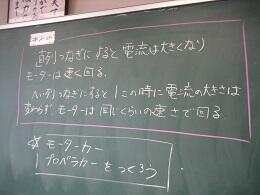 まとめ
直列つなぎにすると電流は大きくなり
モーターは速く回る。
へい列つなぎにすると1この時に電流の大きさは
変わらず モーターは同じくらいの速さで回る。
☆モーターカー
プロペラカーをつくろう